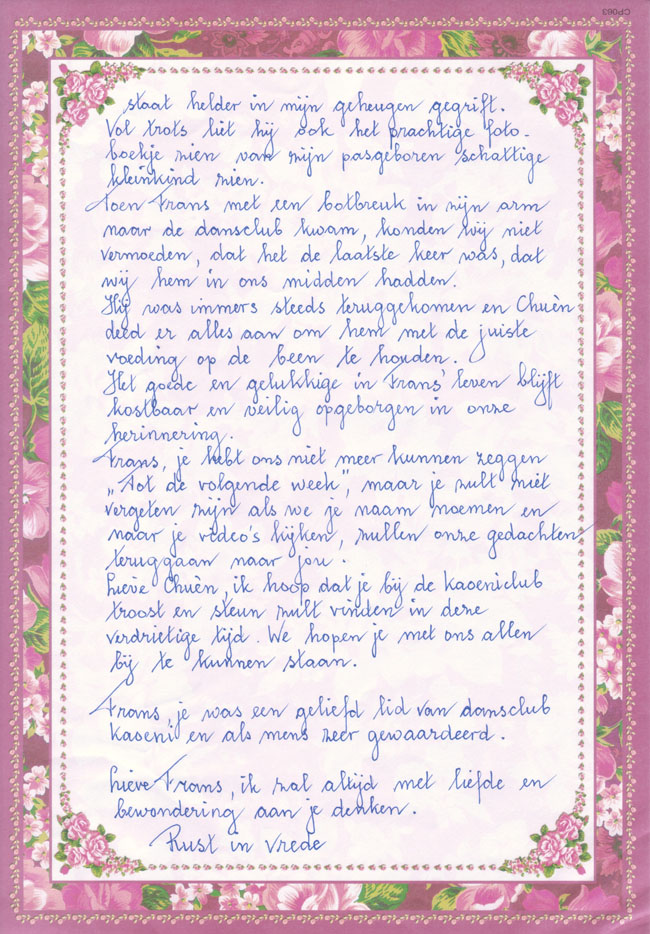 CP063
staat helder in mijn geheugen gegrift.
Vol trots liet hij ook het prachtige foto-
boekje zien van zijn pasgeboren schattige
kleinkind zien.
Toen Frans met een botbreuk in zijn arm
naar de dansclub kwam, konden wij niet
vermoeden, dat het de laatste keer was, dat
wij hem in ons midden hadden.
Hij was immers steeds teruggekomen en Chuèn
deed er alles aan om hem met de juiste
voeding op de been te houden.
Het goede en gelukkige in Frans' leven blijft
kostbaar en veilig opgeborgen in onze
herinnering.
Frans, je hebt ons niet meer kunnen zeggen
„Tot de volgende week", maar je zult niet
vergeten zijn als we je naam noemen en
naar je video's kijken, zullen onze gedachten
teruggaan naar jou.
Lieve Chuèn, ik hoop dat je bij de kaoeniclub
troost en steun zult vinden in deze
verdrietige tijd. We hopen je met ons allen
bij te kunnen staan.
Frans, je was een geliefd lid van dansclub
Kaoeni en als mens zeer gewaardeerd.
Lieve Frans, ik zal altijd met liefde en
bewondering aan je denken.
Rust in vrede